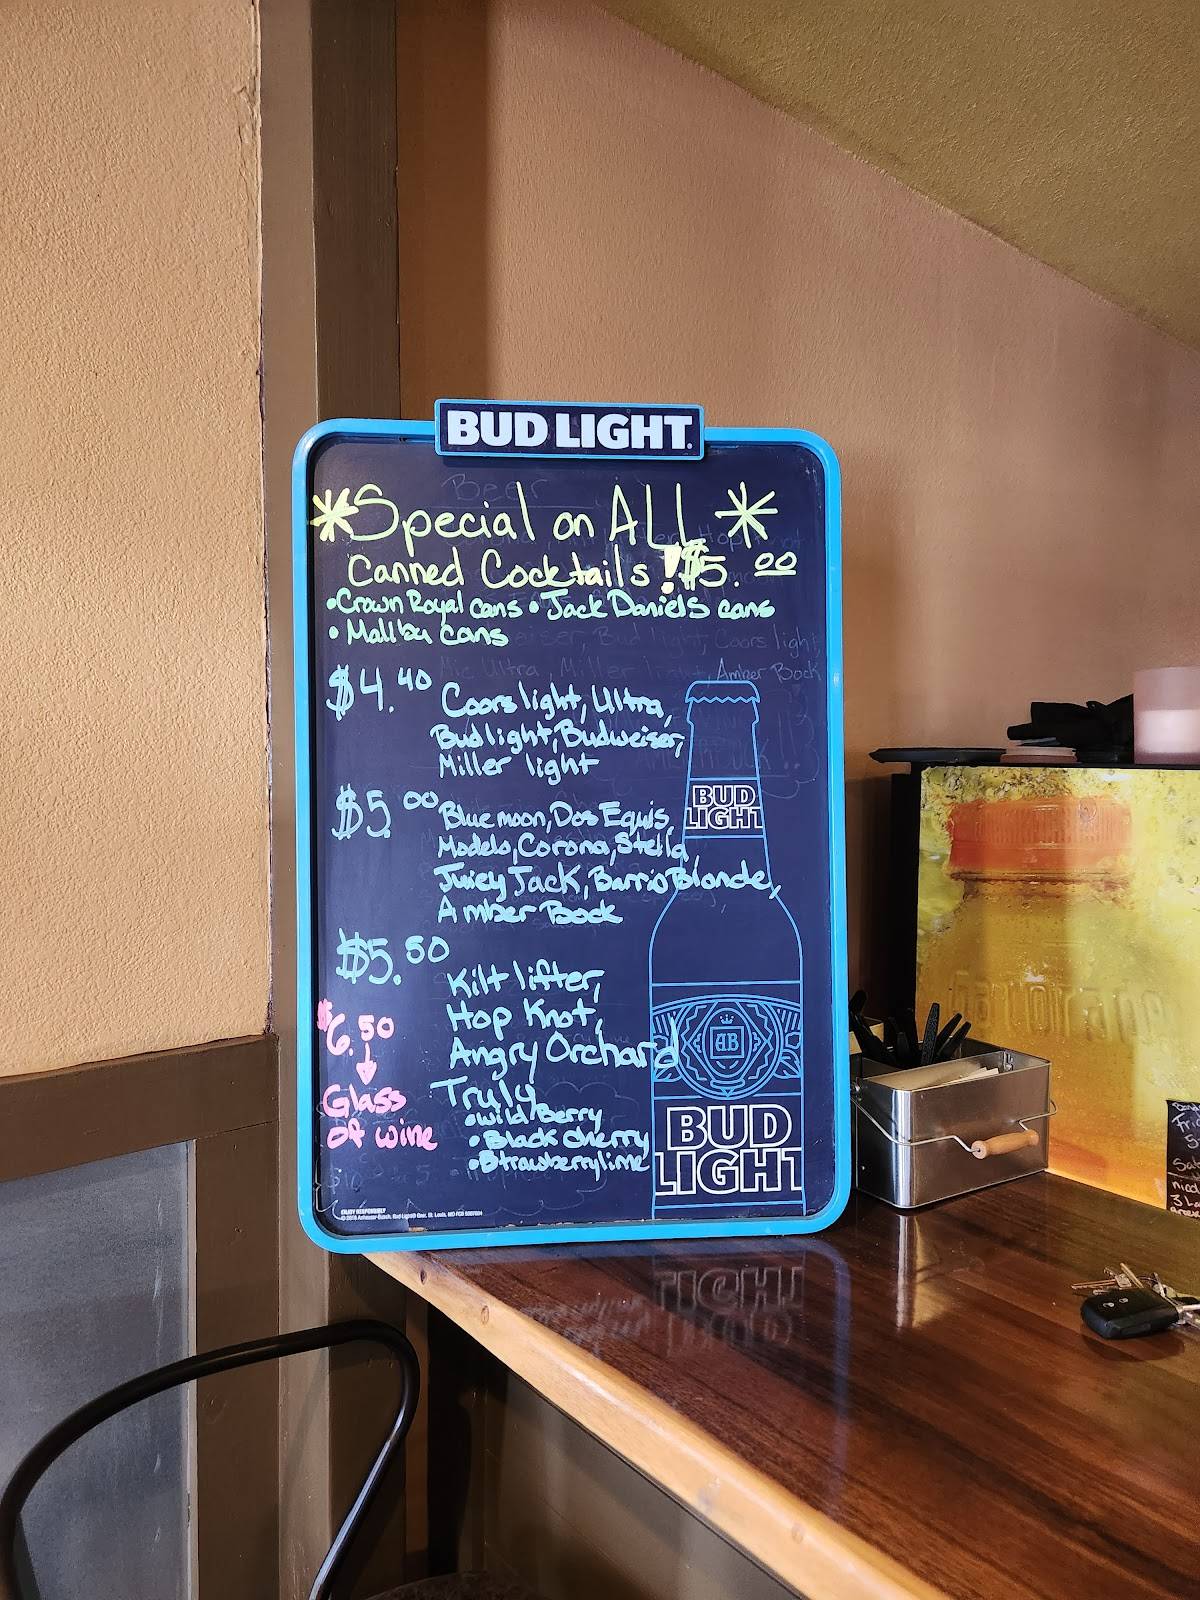 BUD LIGHT.
Beer
*Special on ALL*
Canned Cocktails! $5.00
•Crown Royal cans •Jack Daniels cans
•Malibu cans
Bud light, Coors light
Mic Ultra, Miller light, Amber Bock
$4.40 Coors light, Ultra,
Bud light, Budweiser,
Miller light
$5.00 Blue moon, Dos Equis,
Modelo, Corona, Stella,
Juicy Jack, Barrio Blonde,
Amber Bock
$5.50
Kilt lifter,
Hop Knot,
Angry Orchard
Truly
•Wild Berry
•Black cherry
•Strawberrylime
$6.50
Glass
of wine
BUD
LIGHT
AB
BUD
LIGHT
ENJOY RESPONSIBLY